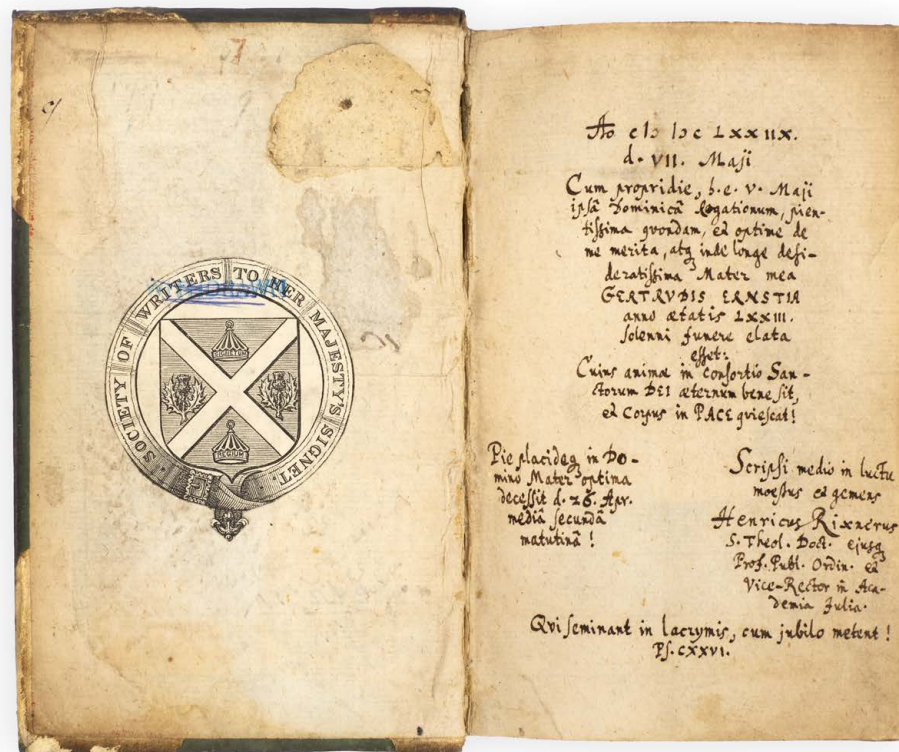 SOCIETY OF WRITERS TO HER MAJESTY'S SIGNET.
SIGNETUM
REGIUM
Ao cIɔ Iɔc LXXIIX.
d. VII. Maji
Cum propridie, h.e. V. Maji
ipsâ Dominicâ Rogationum, pien-
tissima qvondam, et optime de
me merita, atq inde longe desi-
deratissima Mater mea
GERTRVDIS ERNSTIA
anno ætatis LXXIII.
solenni funere elata
esset:
Cuius animæ in consortio San-
ctorum DEI æternum bene sit,
et Corpus in PACE qviescat!
Pie placideq in Do-
mino Mater optima
decessit d. 26. Apr.
mediâ secundâ
matutinâ!
Scripsi medio in luctu
moestus et gemens
Henricus Rixnerus
S. Theol. Doct. ejusq
Prof. Publ. Ordin. et
Vice-Rector in Aca-
demia Julia.
Qvi seminant in lacrymis, cum jubilo metent!
Ps. CXXVI.